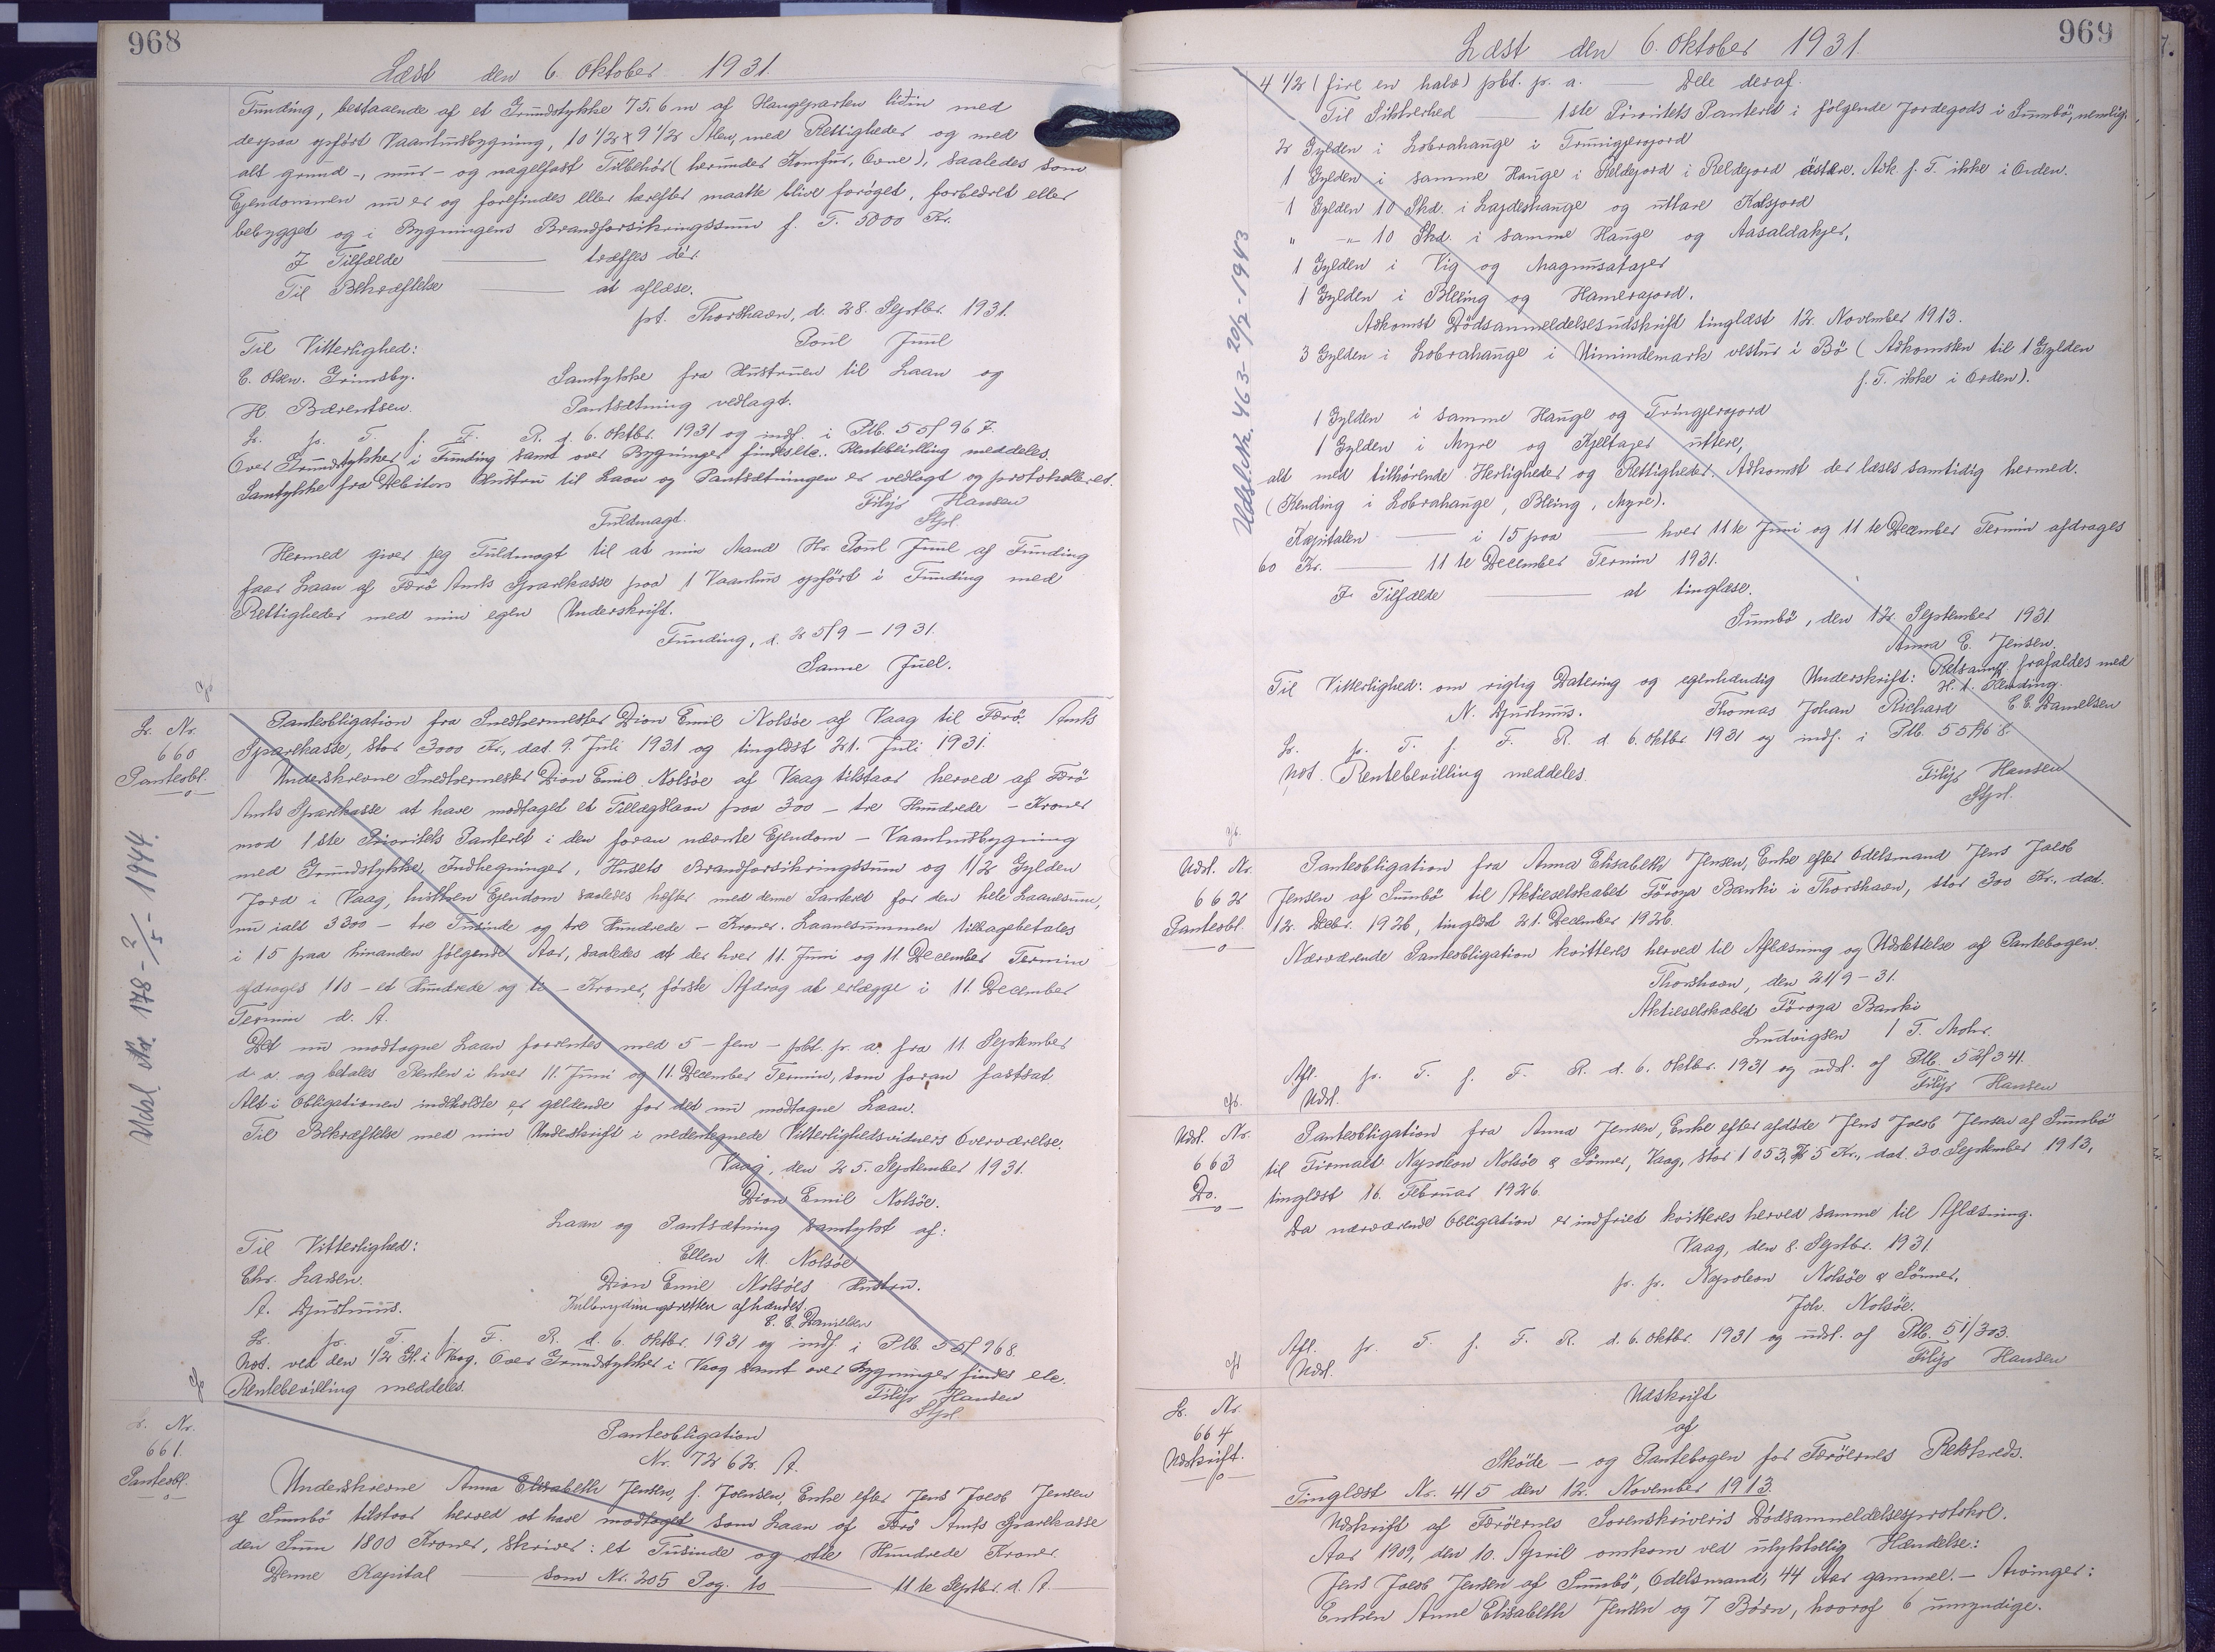 968
Læst den 6. Oktober 1931.
Funding, bestaaende af et Grundstykke 75,6 m af Haugeparten liðin med
derpaa opført Vaanhusbygning, 10 1/2 x 9 1/2 Alen, med Rettigheder og med
alt grund-, mur- og nagelfast Tilbehør (herunder Komfur, Ovne), saaledes som
Ejendommen nu er og forefindes eller herefter maatte blive forøget, forbedret eller
bebygget og i Bygningens Brandforsikringssum f. T. 5000 Kr.
I Tilfælde ——— træffes dér.
Til Bekræftelse ——— at aflæse.
pt. Thorshavn, d. 28. Septbr. 1931.
Poul Juul
Til Vitterlighed:
E. Olsen. Grimsby.
Samtykke fra Hustruen til Laan og
H Bærentsen.
Pantsætning vedlagt.
Lr. pr. T. f. F. R. d. 6. Oktbr. 1931 og indf. i Ptb. 55/967.
Over Grundstykker i Funding samt over Bygninger findes etc. Rentebevilling meddeles.
Samtykke fra Debitors Hustru til Laan og Pantsætningen er vedlagt og protokolleret.
Filip Hansen
Stpl.
Fuldmagt.
Hermed giver jeg Fuldmagt til at min Mand Hr. Poul Juul af Funding
faar Laan af Færø Amts Sparekasse paa 1 Vaanhus opført i Funding med
Rettigheder med min egen Underskrift.
Funding, d. 25/9 - 1931.
Sanne Juel.
Lr. Nr.
660
Panteobl.
Panteobligation fra Snedkermester Dion Emil Nolsøe af Vaag til Færø Amts
Sparekasse, stor 3000 Kr., dat. 9. Juli 1931 og tinglæst 21. Juli 1931.
Underskrevne Snedkermester Dion Emil Nolsøe af Vaag tilstaar herved af Færø
Amts Sparekasse at have modtaget et Tillægslaan paa 300 - tre Hundrede - Kroner
mod 1ste Prioritets Panteret i den foran nævnte Ejendom - Vaanhusbygning
med Grundstykke, Indhegninger, Husets Brandforsikringssum og 1/2 Gylden
Jord i Vaag, hvilken Ejendom saaledes hæfter med denne Panteret for den hele Laanesum,
nu ialt 3300 - tre Tusinde og tre Hundrede - Kroner. Laanesummen tilbagebetales
i 15 paa hinanden følgende Aar, saaledes at der hver 11. Juni og 11. December Termin
afdrages 110 - et Hundrede og ti - Kroner, første Afdrag at erlægge i 11. December
Termin d. A.
Det nu modtagne Laan forrentes med 5 - fem - pCt. p. a. fra 11. September
d. a. og betales Renten i hver 11. Juni og 11. December Termin, som foran fastsat
Alt i Obligationen indeholdte er gældende for det nu modtagne Laan.
Til Bekræftelse med min Underskrift i nedentegnede Vitterlighedsvidners Overværelse.
Vaag, den 25. September 1931.
Dion Emil Nolsøe.
Laan og Pantsætning samtykt af:
Til Vitterlighed:
Ellen M. Nolsøe
Chr. Larsen.
Dion Emil Nolsøes Hustru.
A. Djurhuus.
Kulbrydningsretten afhændet.
E. E. Danielsen
Lr. pr. T. f. F. R. d. 6. Oktbr. 1931 og indf. i Ptb. 55/968.
Not. ved den 1/2 Gl. i Vaag. Over Grundstykker i Vaag samt over Bygninger findes etc.
Rentebevilling meddeles.
Filip Hansen
Stpl.
Udsl. Nr. 178 - 2/5 - 1944.
Lr. Nr.
661.
Panteobl.
Panteobligation
Nr. 7262. A.
Underskrevne Anna Elisabeth Jensen, f. Joensen, Enke efter Jens Jacob Jensen
af Sumbø tilstaar herved at have modtaget som Laan af Færø Amts Sparekasse
den Sum 1800 Kroner, skriver: et Tusinde og otte Hundrede Kroner.
Denne Kapital ——— som Nr. 205 Pag. 10 ——— 11te Septbr. d. A.
969
Læst den 6. Oktober 1931.
4 1/2 (fire en halv) pCt. p. a. ——— Dele deraf.
Til Sikkerhed ——— 1ste Prioritets Panteret i følgende Jordegods i Sumbø, nemlig:
2 Gylden i Lobrahauge i Trunigjerojord
1 Gylden i samme Hauge i Reldejord i Reldejord østere. Adk. f. T. ikke i Orden.
1 Gylden 10 Skd. i Lajdeshauge og uttare Kalsjord
" -"- 10 Skd. i samme Hauge og Aasaldakjer,
1 Gylden i Vig og Magnusatajer
1 Gylden i Bleing og Hamerajord.
Adkomst Dødsanmeldelsesudskrift tinglæst 12. November 1913.
3 Gylden i Lobrahauge i Uimindemark vestur i Bø (Adkomsten til 1 Gylden
f. T. ikke i Orden).
1 Gylden i samme Hauge og Tringjerojord
1 Gylden i Myre og Kjeltajer uttere,
alt med tilhørende Herligheder og Rettigheder. Adkomst der læses samtidig hermed.
(Kending i Lobrahauge, Bleing, Myre).
Kapitalen ——— i 15 paa ——— hver 11te Juni og 11te December Termin afdrages
60 Kr. ——— 11te December Termin 1931.
I Tilfælde ——— at tinglæse.
Sumbø, den 12. September 1931
Anna E. Jensen.
Til Vitterlighed: om rigtig Datering og egenhændig Underskrift: Retsanm. frafaldes med
H. t. Kending.
N. Djurhuus.
Thomas Johan Richard
E E Danielsen
Lr. pr. T. f. F. R. d. 6. Oktbr. 1931 og indf. i Ptb. 55/968.
Not. Rentebevilling meddeles.
Filip Hansen
Stpl.
Udslt. Nr. 463 - 20/7 - 1943
Udsl. Nr.
662
Panteobl.
Panteobligation fra Anna Elisabeth Jensen, Enke efter Odelsmand Jens Jacob
Jensen af Sumbø til Aktieselskabet Føroya Banki i Thorshavn, stor 300 Kr., dat.
12. Decbr. 1926, tinglæst 21. December 1926.
Nærværende Panteobligation kvitteres herved til Aflæsning og Udslettelse af Pantebogen.
Thorshavn, den 21/9 - 31.
Aktieselskabet Føroya Banki
Ludvigsen / T. Mohr.
Afl. pr. T. f. F. R. d. 6. Oktbr. 1931 og udsl. af Ptb. 52/341.
Udsl.
Filip Hansen
Udsl. Nr.
663
Do.
Panteobligation fra Anna Jensen, Enke efter afdøde Jens Jacob Jensen af Sumbø
til Firmaet Napoleon Nolsøe & Sønner, Vaag, stor 1053,75 Kr., dat. 30. September 1913,
tinglæst 16. Februar 1926.
Da nærværende Obligation er indfriet kvitteres herved samme til Aflæsning.
Vaag, den 8. Septbr. 1931.
pr. pr. Napoleon Nolsøe & Sønner,
Joh. Nolsøe.
Afl. pr. T. f. F. R. d. 6. Oktbr. 1931 og udsl. af Ptb. 51/303.
Udsl.
Filip Hansen
Lr. Nr.
664
Udskrift.
Udskrift
af
Skøde - og Pantebogen for Færøernes Retskreds.
Tinglæst Nr. 415 den 12. November 1913.
Udskrift af Færøernes Sorenskriveris Dødsanmeldelsesprotokol.
Aar 1909, den 10. April omkom ved ulykkelig Hændelse:
Jens Jacob Jensen af Sumbø, Odelsmand, 44 Aar gammel. - Arvinger:
Enken Anne Elisabeth Jensen og 7 Børn, hvoraf 6 umyndige.